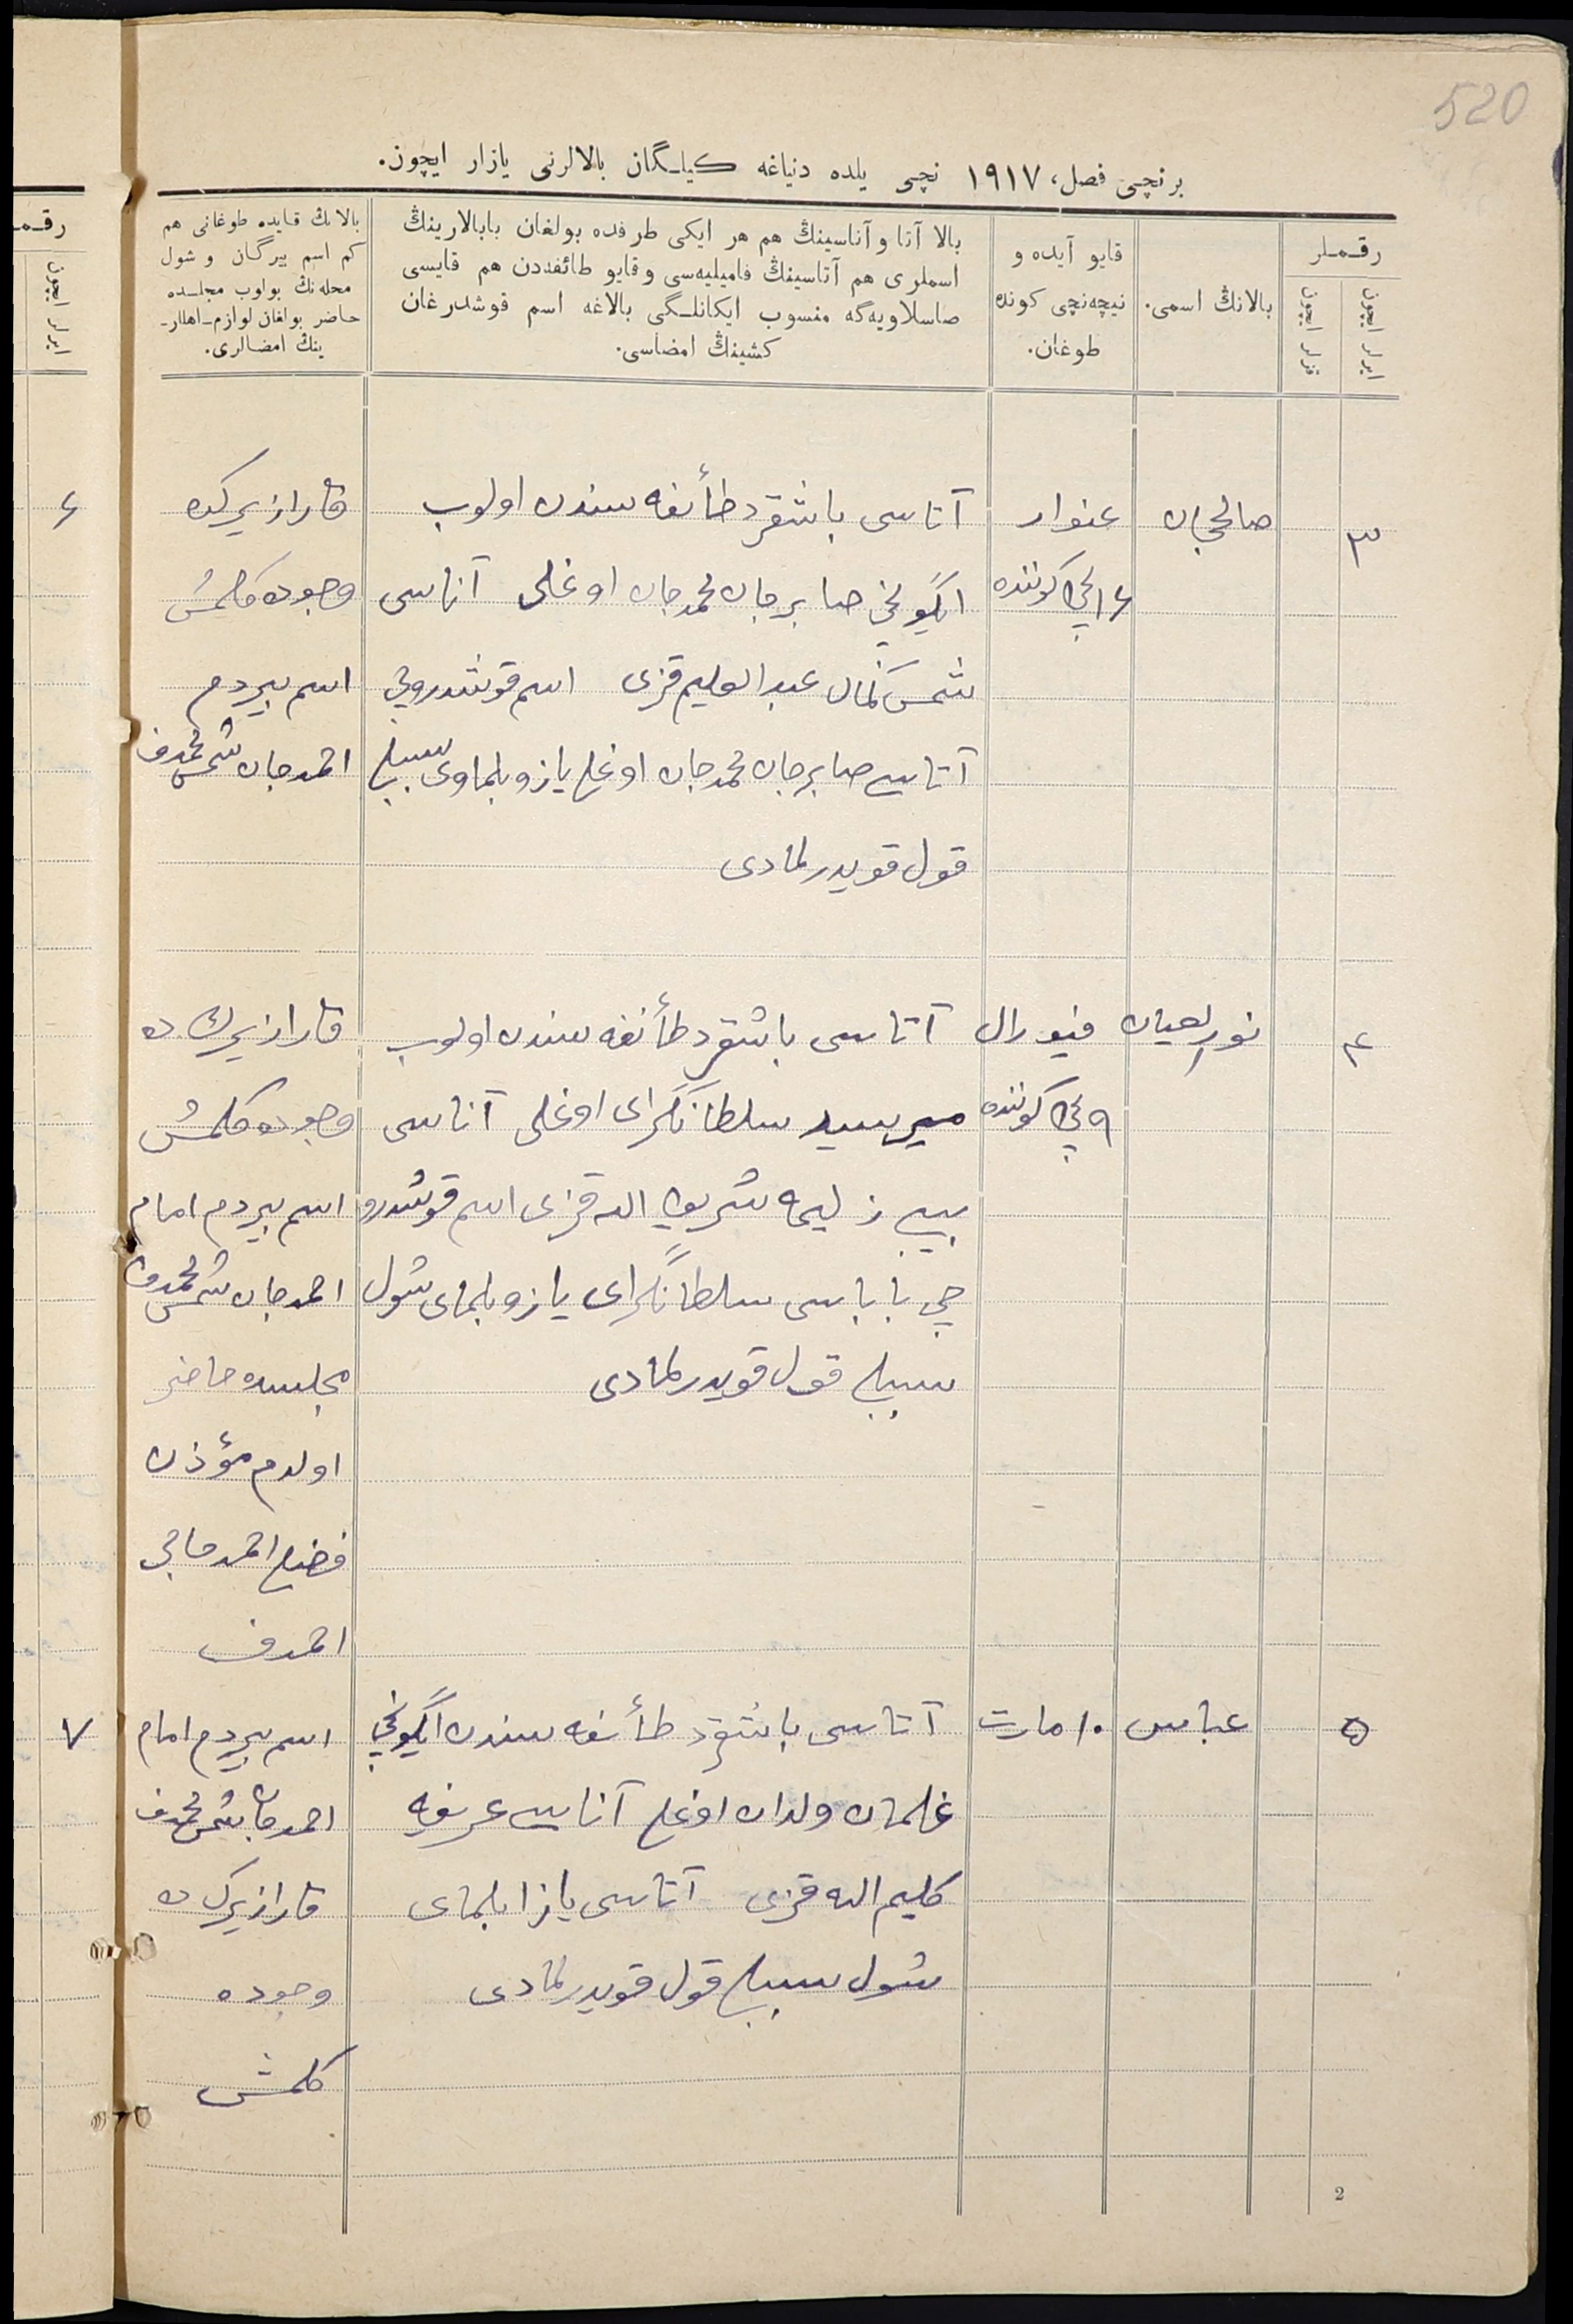 520
برنچی فصل، ١٩١٧ نچی یلده دنیاغه کیلگان بالالرنی یازار ایچون.
رقملر
ایرلر ایچون
قزلر ایچون
بالانڭ اسمی.
قایو آیده و
نیچه‌نچی کونده
طوغان.
بالا آتا و آناسینڭ هم هر ایکی طرفده بولغان بابالارینڭ
اسملری هم آتاسینڭ فامیلیه‌سی و قایو طائفه‌دن هم قایسی
صاسلاویه‌گه منسوب ایکانلگی بالاغه اسم قوشدرغان
کشینڭ امضاسی.
بالانڭ قایده طوغانی هم
کم اسم بیرگان و شول
محله‌نڭ بولوب مجلسده
حاضر بولغان لوازم اهللر-
ینڭ امضالری.
٣
صالحجان
غنوار
١٦ نچی کوننده
آتاسی باشقرد طائفه سندن اولوب
صابرجان محمدجان اوغلی آناسی
شمس کمال عبدالعلیم قزی اسم قوشدروچی
آتاسی صابرجان محمدجان اوغلی یازو بلماوی سببلی
قول قویدرلمادی
قارازیرکده
وجوده کلمش
اسم بیردم
احمدجان شمس محمدف
٤
نورالعیان
فیورال
٩ نچی کوننده
آتاسی باشقرد طائفه سندن اولوب
میرسید سلطانگرای اوغلی آناسی
بیبی زلیحه شریف الله قزی اسم قوشدرو
چی باباسی سلطانگرای یازو بلمای شول
سببلی قول قویدرلمادی
قارازیرك ده
وجوده کلمش
اسم بیردم امام
احمدجان شمس محمدف
مجلسده حاضر
اولدم مؤذن
احمدف
٥
عباس
١٠ مارت
آتاسی باشقرد طائفه سندن
غلمان ولدان اوغلی آناسی عریفه
کلیم الله قزی آتاسی یازا بلمای
شول سببلی قول قویدرلمادی
اسم بیردم امام
احمدجان شمس محمدف
قارازیرك ده
وجوده
کلمش
2
رقم
ایرلر ایچون
٦
٧